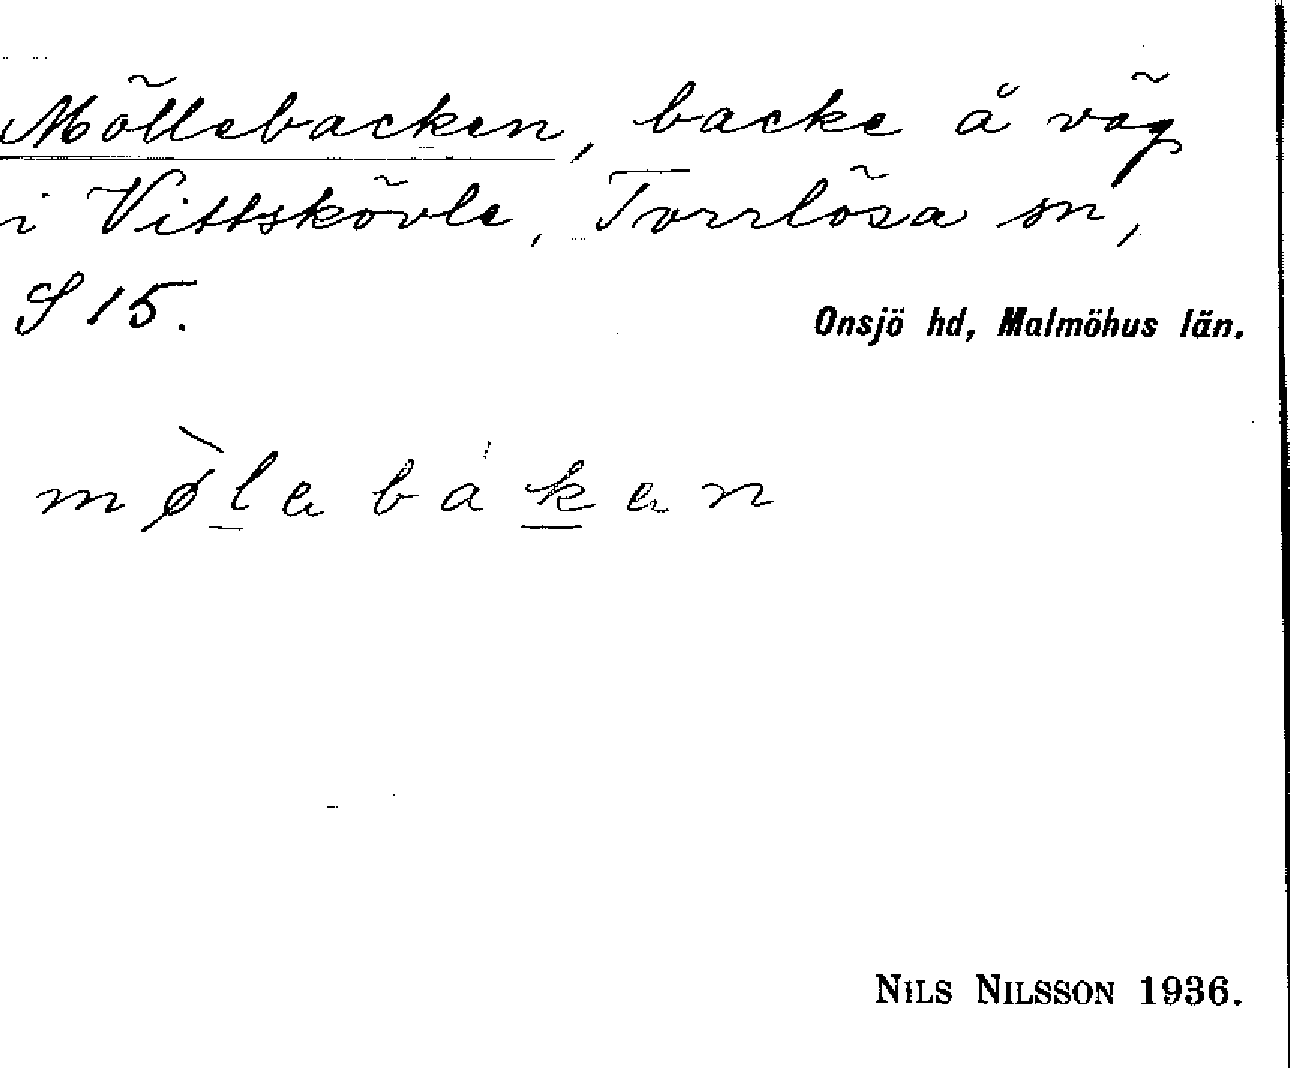 Möllebacken, backe å väg
i Vittskövle, Torrlösa sn,
S 15.
Onsjö hd, Malmöhus län.
mø̀la bákan
NILS NILSSON 1936.